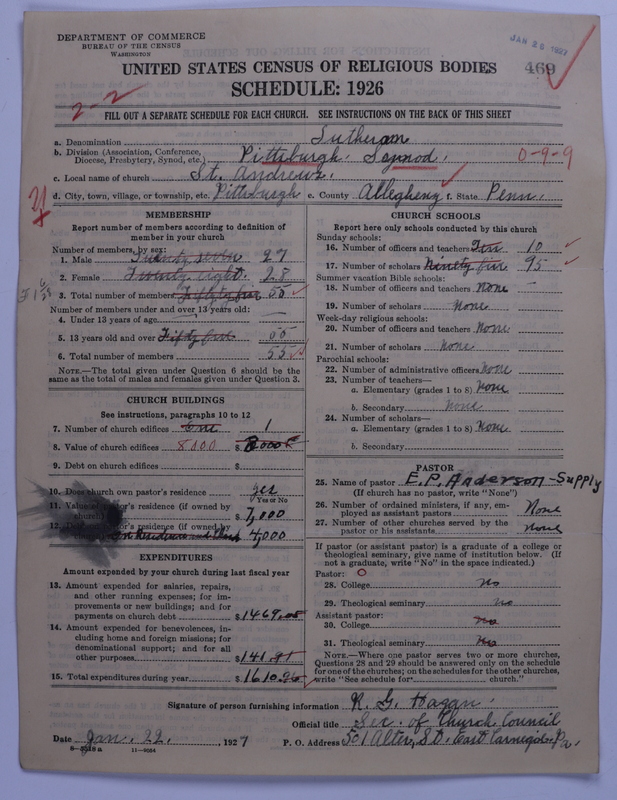 DEPARTMENT OF COMMERCE
BUREAU OF THE CENSUS
WASHINGTON
JAN 26 1927
469
UNITED STATES CENSUS OF RELIGIOUS BODIES
SCHEDULE: 1926
2-2
FILL OUT A SEPARATE SCHEDULE FOR EACH CHURCH. SEE INSTRUCTIONS ON THE BACK OF THIS SHEET
a. Denomination Lutheran
b. Division (Association, Conference, Diocese, Presbytery, Synod, etc.) Pittsburgh Synod. 0-9-9
c. Local name of church St. Andrews.
d. City, town, village, or township, etc. Pittsburgh e. County Allegheny f. State Penn.
MEMBERSHIP
Report number of members according to definition of
member in your church
Number of members, by sex:
1. Male Twenty seven 27
2. Female Twenty eight. 28
3. Total number of members Fifty five 55
Number of members under and over 13 years old:
4. Under 13 years of age —
5. 13 years old and over Fifty five 55
6. Total number of members 55
NOTE.—The total given under Question 6 should be
same as the total of males and females given under Question 3.
CHURCH BUILDINGS
See instructions, paragraphs 10 to 12
7. Number of church edifices One 1
8. Value of church edifices 8000 $ 8000
9. Debt on church edifices $
10. Does church own pastor's residence yes
Yes or No
11. Value of pastor's residence (if owned by
church) 7,000
12. pastor's residence (if owned by
4,000
EXPENDITURES
Amount expended by your church during last fiscal year
13. Amount expended for salaries, repairs,
and other running expenses; for im-
provements or new buildings; and for
payments on church debt $1469.05
14. Amount expended for benevolences, in-
cluding home and foreign missions; for
denominational support; and for all
other purposes $141.91
15. Total expenditures during year $1610.96
CHURCH SCHOOLS
Report here only schools conducted by this church
Sunday schools:
16. Number of officers and teachers Ten 10
17. Number of scholars Ninety five 95
Summer vacation Bible schools:
18. Number of officers and teachers None —
19. Number of scholars None
Week-day religious schools:
20. Number of officers and teachers None
21. Number of scholars None
Parochial schools:
22. Number of administrative officers None
23. Number of teachers—
a. Elementary (grades 1 to 8) None
b. Secondary None
24. Number of scholars—
a. Elementary (grades 1 to 8) None
b. Secondary
PASTOR
25. Name of pastor E.P. Anderson-Supply
(If church has no pastor, write "None")
26. Number of ordained ministers, if any, em-
ployed as assistant pastors None
27. Number of other churches served by the
pastor or his assistants None
If pastor (or assistant pastor) is a graduate of a college or
theological seminary, give name of institution below. (If
not a graduate, write "No" in the space indicated.)
Pastor: O
28. College No
29. Theological seminary No
Assistant pastor:
30. College No
31. Theological seminary No
NOTE.—Where one pastor serves two or more churches,
Questions 28 and 29 should be answered only on the schedule
for one of the churches; on the schedules for the other churches,
write "See schedule for church."
Signature of person furnishing information R. G. Hagan
Official title Sec. of Church Council
Date Jan. 22. 1927 P. O. Address 501 Alter, St. East Carnegie, Pa.
8-5518a 11-9084